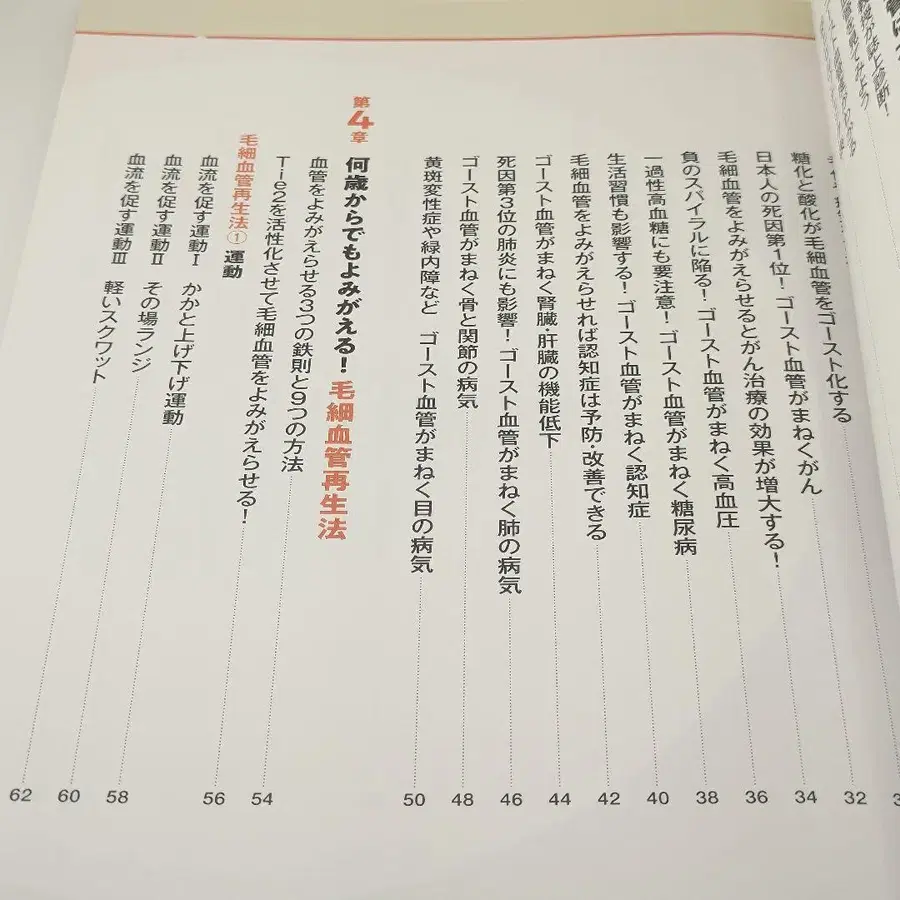 糖化と酸化が毛細血管をゴースト化する 32
日本人の死因第1位！ ゴースト血管がまねくがん 34
毛細血管をよみがえらせるとがん治療の効果が増大する！ 36
負のスパイラルに陥る！ ゴースト血管がまねく高血圧 38
一過性高血糖にも要注意！ ゴースト血管がまねく糖尿病 40
生活習慣も影響する！ ゴースト血管がまねく認知症 42
毛細血管をよみがえらせれば認知症は予防・改善できる
ゴースト血管がまねく腎臓・肝臓の機能低下 44
死因第3位の肺炎にも影響！ ゴースト血管がまねく肺の病気 46
ゴースト血管がまねく骨と関節の病気 48
黄斑変性症や緑内障など ゴースト血管がまねく目の病気 50
第4章 何歳からでもよみがえる！ 毛細血管再生法
血管をよみがえらせる3つの鉄則と9つの方法 54
Tie2を活性化させて毛細血管をよみがえらせる！ 56
毛細血管再生法① 運動
血流を促す運動Ⅰ かかと上げ下げ運動 58
血流を促す運動Ⅱ その場ランジ 60
血流を促す運動Ⅲ 軽いスクワット 62